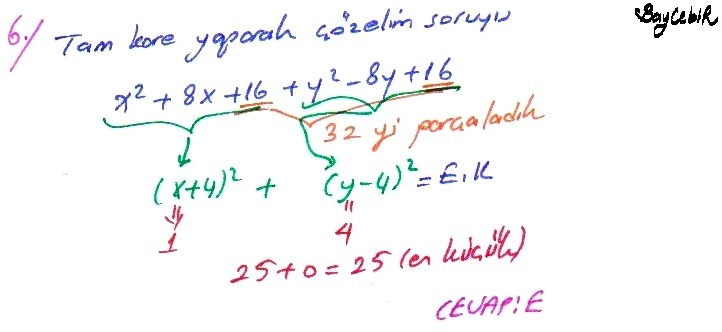 BayCebiR
6./ Tam kare yaparak çözelim soruyu
x² + 8x + 16 + y² - 8y + 16
32 yi parçaladık
(x+4)² + (y-4)² = E.K
1 4
25 + 0 = 25 (en küçük)
CEVAP: E